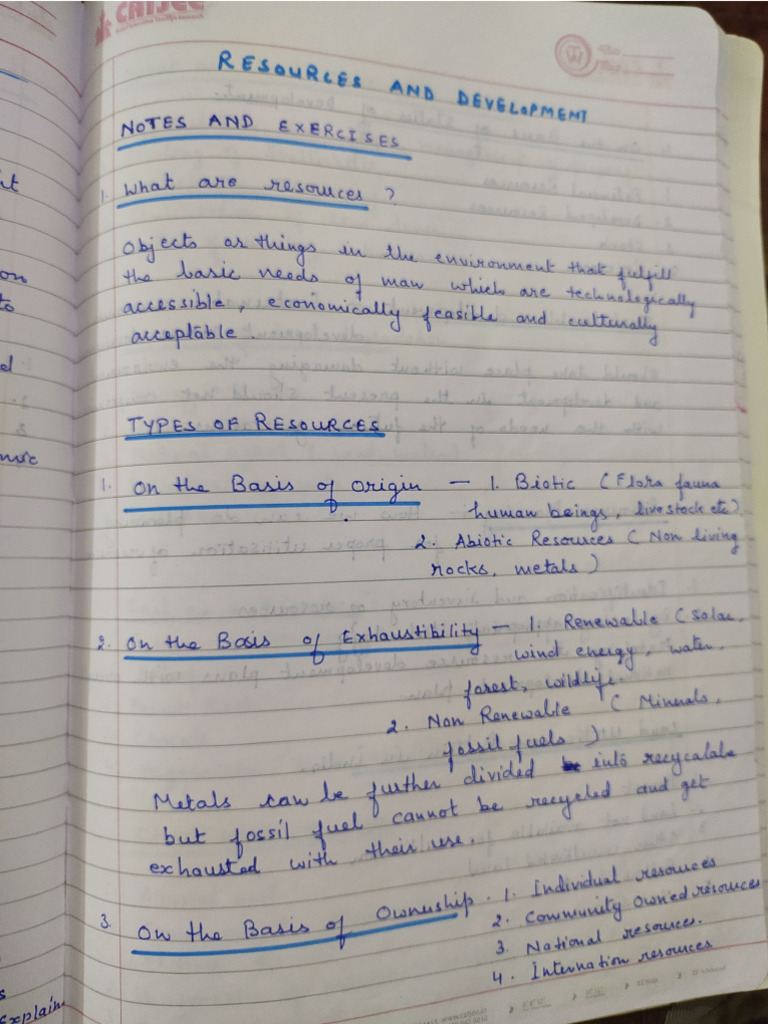 CATJEE
RESOURCES AND DEVELOPMENT
NOTES AND EXERCISES
1. What are resources ?
Objects or things in the environment that fulfill
the basic needs of man which are technologically
accessible, economically feasible and culturally
acceptable.
TYPES OF RESOURCES
1. On the Basis of Origin — 1. Biotic (Flora fauna
human beings, livestock etc)
2. Abiotic Resources (Non living
rocks, metals)
2. On the Basis of Exhaustibility — 1. Renewable (Solar,
wind energy, water.
forest, wildlife.
2. Non Renewable (Minerals,
fossil fuels)
Metals can be further divided into recycalabe
but fossil fuel cannot be recycled and get
exhausted with their use.
3. On the Basis of Ownership. 1. Individual resources
2. Community Owned resources
3. National resources.
4. Internation resources
on
to
d
s
explain